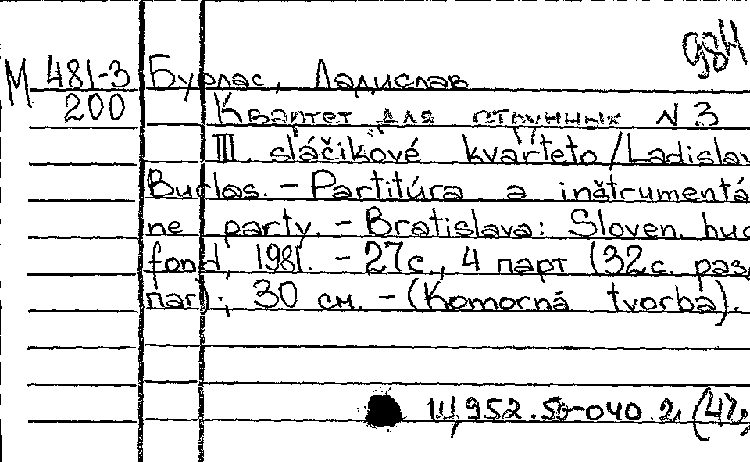 984
М 481-3 Бурлас, Ладислав
200 Квартет для струнных N 3
III. sláčikové kvarteto / Ladislav
Burlas. – Partitúra a inštrumentá
ne party. – Bratislava: Sloven. hud
fond, 1981. – 27с., 4 парт (32с. раз.
паг); 30 см. – (Komorná tvorba).
Щ952.5я-040.2